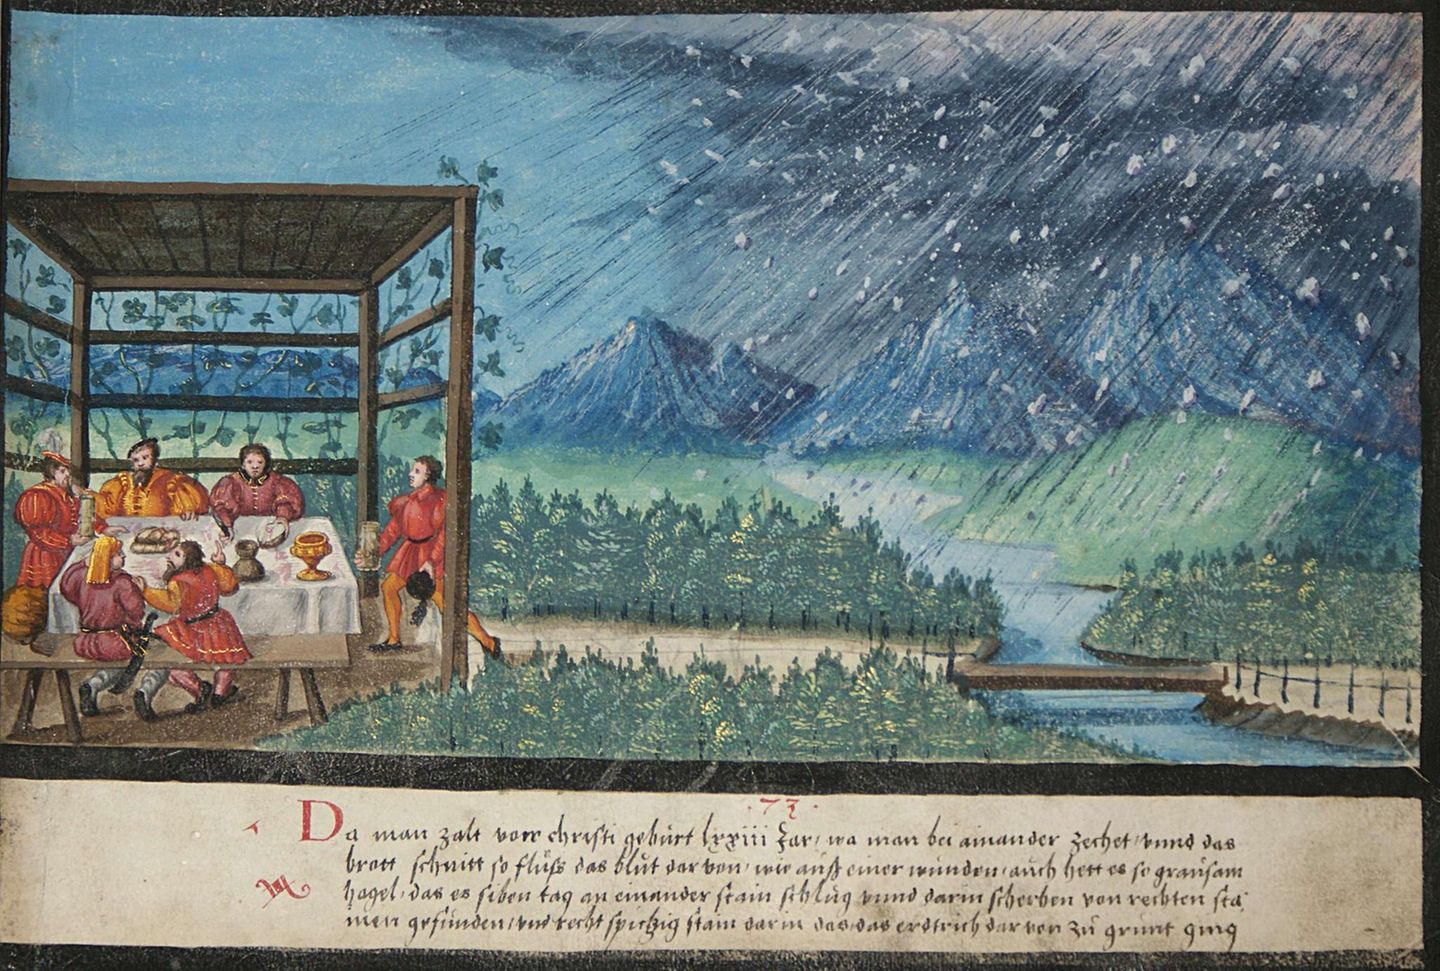 ·73·
Da man zalt vorr christi geburt lxxiii Jar, wa man bei ainander zechet, vnnd das
brott schnitt so fluss das blut dar von, wie auß einer wunden, auch hett es so grausam
hagel, das es siben tag an einander stain schlug vnnd darin scherben von rechten sta⸗
men gefunden, vnd recht spitzig stain darin das, das erdtrich dar von zu grunt ging